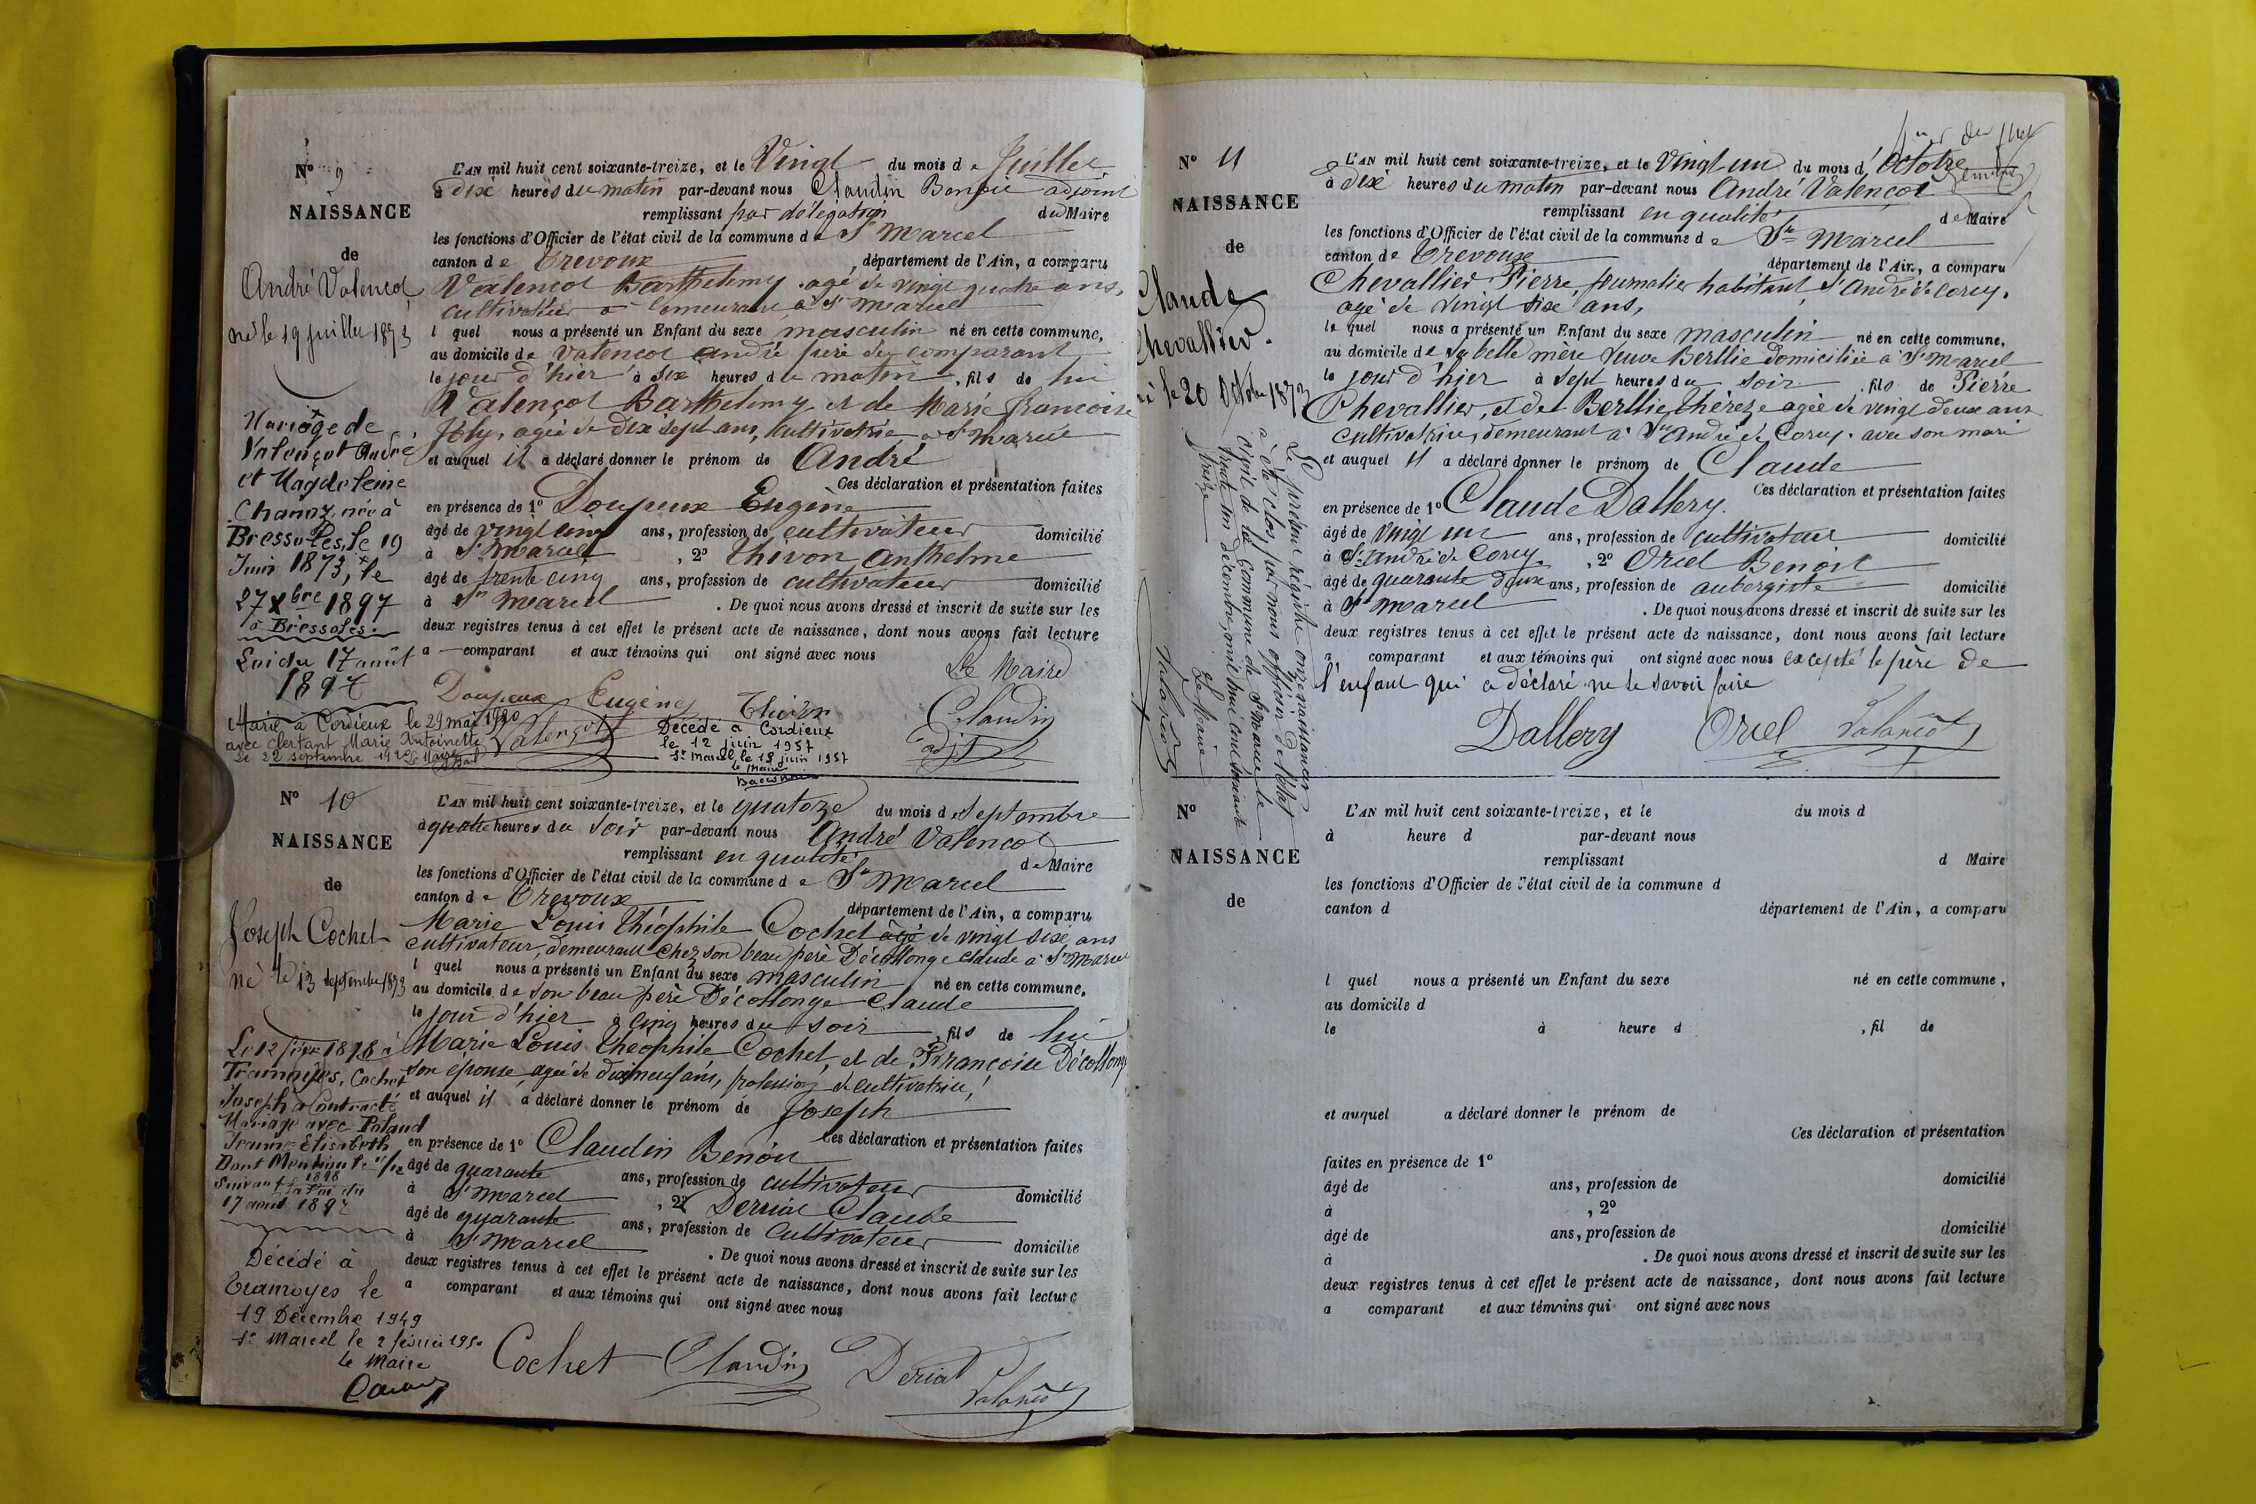 N° 9
NAISSANCE
de
André Valençot
né le 19 juillet 1873
Mariage de
Valençot André
et Magdeleine
Charroy, née à
Bressoles, le 19
Juin 1873, le
27 Xbre 1897
à Bressoles.
Loi du 17 août
1897
Marié à Cordieux le 29 mai 1920
avec Clertant Marie Antoinette
Le 22 septembre Le Maire
L'AN mil huit cent soixante-treize, et le Vingt du mois de Juillet
à dix heures du matin par-devant nous Claudin Benoit adjoint
remplissant par délégation du Maire
les fonctions d'Officier de l'état civil de la commune de St Marcel
canton de Trevoux, département de l'Ain, a comparu
Valençot Barthelemy agé de vingt quatre ans,
cultivateur demeurant à St Marcel
l quel nous a présenté un Enfant du sexe masculin né en cette commune,
au domicile de Valençot André père du comparant
le jour d'hier à six heures du matin, fils de lui
Valençot Barthelemy et de Marie françoise
Joly, agée de dix sept ans, cultivatrice à St Marcel
et auquel il a déclaré donner le prénom de André
Ces déclaration et présentation faites
en présence de 1° Doupeux Eugène
âgé de vingt cinq ans, profession de cultivateur domicilié
à St Marcel, 2° Thivon Anthelme
âgé de trente cinq ans, profession de cultivateur domicilié
à St Marcel. De quoi nous avons dressé et inscrit de suite sur les
deux registres tenus à cet effet le présent acte de naissance, dont nous avons fait lecture
a comparant et aux témoins qui ont signé avec nous
Le Maire
Doupeux Eugène Thivon Claudin
Valençot adjt
Décédé à Cordieux
le 12 juin 1957
St Marcel, le 15 juin 1957
le Maire
N° 10
NAISSANCE
de
Joseph Cochet
né le 13 septembre 1873
Tramoyes, Cochet
Joseph a Contracté
Mariage avec Poland
Jeanne Elisabeth
1898
suivant la Loi du
17 août 1897
Décédé à
Tramoyes le
19 Décembre 1949
St Marcel le 2 février 1950
le Maire
L'AN mil huit cent soixante-treize, et le quatoze du mois de Septembre
à quatre heures du soir par-devant nous André Valençot
remplissant en qualité de Maire
les fonctions d'Officier de l'état civil de la commune de St Marcel
canton de Trevoux département de l'Ain, a comparu
Marie Louis Théophile Cochet âgé de vingt six ans
cultivateur, demeurant chez son beau père Décollonge Claude à St Marcel
l quel nous a présenté un Enfant du sexe masculin né en cette commune,
au domicile de son beau père Décollonge Claude
le jour d'hier à cinq heures du soir, fils de lui
Marie Louis Théophile Cochet, et de Françoise Décollonge
son épouse agée de dixneuf ans, profession de cultivatrice,
et auquel il a déclaré donner le prénom de Joseph
Ces déclaration et présentation faites
en présence de 1° Claudin Benoit
âgé de quarante ans, profession de cultivateur domicilié
à St Marcel, 2° Derriat Claude
âgé de quarante ans, profession de Cultivateur domicilié
à St Marcel. De quoi nous avons dressé et inscrit de suite sur les
deux registres tenus à cet effet le présent acte de naissance, dont nous avons fait lecture
a comparant et aux témoins qui ont signé avec nous
Cochet Claudin Deriat Valançot
N° 11
NAISSANCE
de
Claude
Chevallier.
né le 20 Octobre 1873
Le présent régistre onze naissances
a été clos par nous officier de l'état
civil de la commune de St Marcel le
trente un décembre mil huit cent soixante
treize
Le Maire
Valançot
L'AN mil huit cent soixante-treize, et le vingt un du mois d'Octobre
à dix heures du matin par-devant nous André Valençot
remplissant en qualité de Maire
les fonctions d'Officier de l'état civil de la commune de St Marcel
canton de Trevoux département de l'Ain, a comparu
Chevallier Pierre, journalier habitant St André de Corcy.
agé de vingt six ans,
le quel nous a présenté un Enfant du sexe masculin né en cette commune,
au domicile de sa belle mère Veuve Berllie domiciliée à St Marcel
le jour d'hier à sept heures du soir, fils de Pierre
Chevallier, et de Berllie Thérèze agée de vingt deux ans
cultivatrice, demeurant à St André de Corcy. avec son mari
et auquel il a déclaré donner le prénom de Claude
Ces déclaration et présentation faites
en présence de 1° Claude Dallery.
âgé de vingt un ans, profession de cultivateur domicilié
à St André de Corcy, 2° Oriel Benoit
âgé de quarante deux ans, profession de aubergiste domicilié
à St Marcel. De quoi nous avons dressé et inscrit de suite sur les
deux registres tenus à cet effet le présent acte de naissance, dont nous avons fait lecture
a comparant et aux témoins qui ont signé avec nous excepté le père de
l'enfant qui a déclaré ne le savoir faire
Dallery Oriel Valançot
N°
NAISSANCE
de
L'AN mil huit cent soixante-treize, et le du mois d
à heure d par-devant nous
remplissant d Maire
les fonctions d'Officier de l'état civil de la commune d
canton d département de l'Ain, a comparu
l quel nous a présenté un Enfant du sexe né en cette commune,
au domicile d
le à heure d, fil de
et auquel a déclaré donner le prénom de
Ces déclaration et présentation
faites en présence de 1°
âgé de ans, profession de domicilié
à, 2°
âgé de ans, profession de domicilié
à. De quoi nous avons dressé et inscrit de suite sur les
deux registres tenus à cet effet le présent acte de naissance, dont nous avons fait lecture
a comparant et aux témoins qui ont signé avec nous